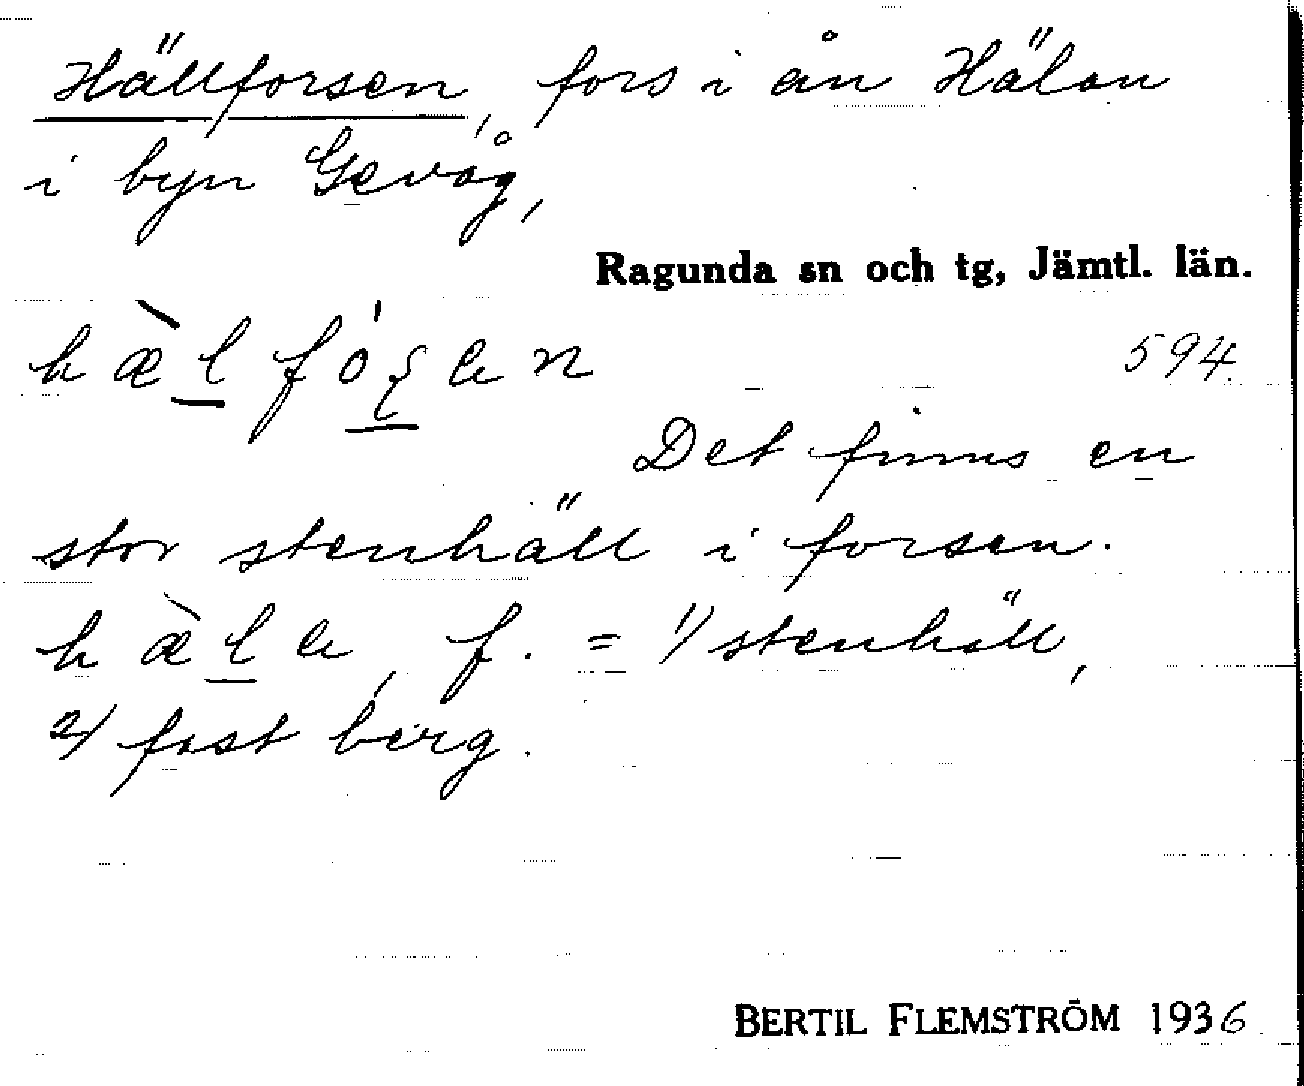 Hällforsen, fors i ån Hälån
i byn Gevåg,
Ragunda sn och tg, Jämtl. län.
594.
Det finns en
stor stenhäll i forsen.
f. = 1/ stenhäll,
2/ fast berg.
BERTIL FLEMSTRÖM 1936